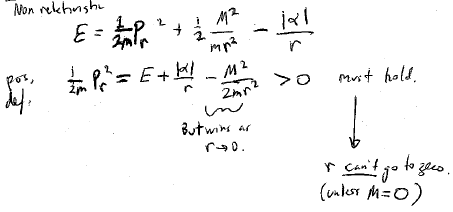 Non relativistic
E = 1/2m Pr² + 1/2 M²/mr² - |α|/r
pos. def. 1/2m Pr² = E + |α|/r - M²/2mr² > 0 must hold.
But wins as
r→0.
r can't go to zero.
(unless M=0)